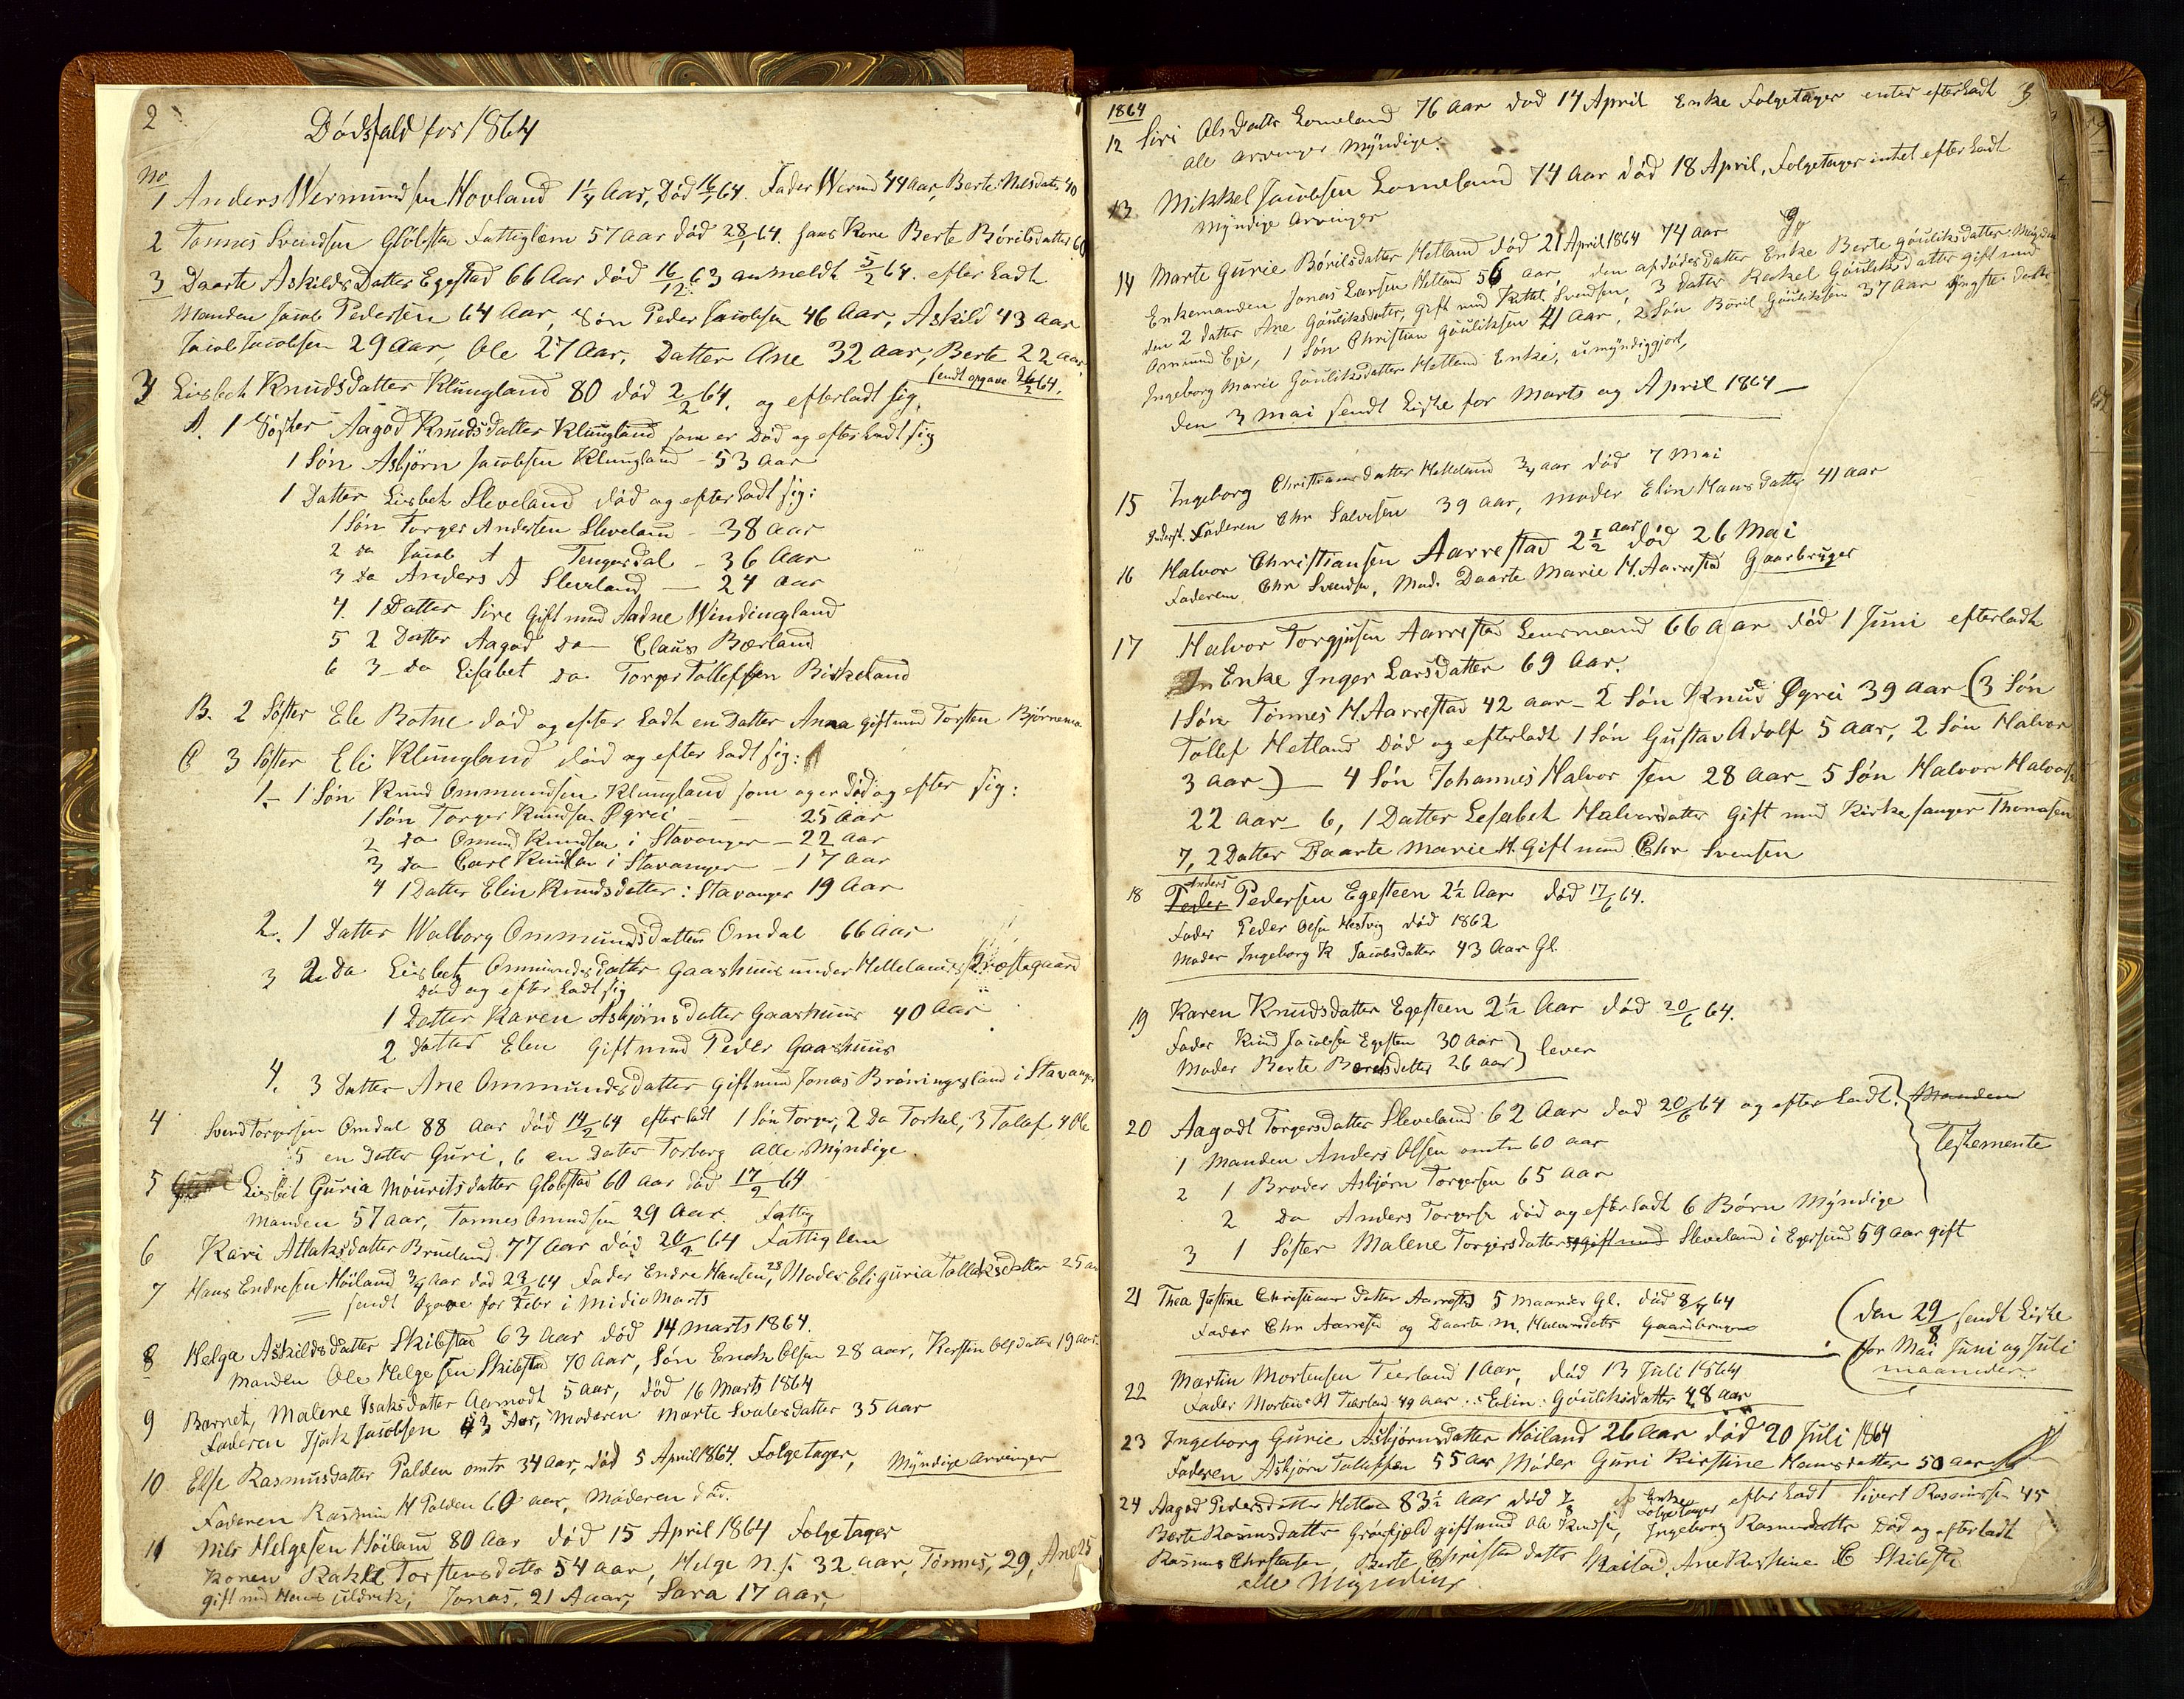 2
Dödsfald for 1864
No
1 Anders Wermundsen Hovland 1¼ Aar, Död 16/1 64. Fader Wermd 44 Aar, Berte Nilsdatr 40
2 Tönnes Svendsen Glöbstad Fattiglem 57 aar död 28/1 64. hans Kone Berte Börilsdatter 60
3 Daarte Askilds Datter Egestad 66 Aar död 16/12 63 anmeldt 5/2 64. efter Ladt
Manden Jacob Pedersen 64 Aar, Sön Peder Jacobsen 46 Aar, Askild 43 aar
Jacob Jacobsen 29 Aar, Ole 27 Aar, Datter Ane 32 aar, Berte 22 aar
sendt opgave 26/2 64.
3 Lisbeth Knudsdatter Klungland 80 död 2/2 64. og efterladt sig,
A. 1 Söster Aagod Knudsdatter Klungland som er Död og efterLadt sig
1 Sön Asbjörn Jacobsen Klungland - 53 aar
1 Datter Lisbeth Sleveland död og efterLadt sig:
1 Sön Torger Andersen Sleveland - 38 aar
2 do Jacob A Tengesdal - 36 Aar
3 do Anders A Sleveland - 24 aar
4. 1 Datter Sire Gift med Aadne Windingland
5 2 Datter Aagod do Claus Bærland
6 3 do Lisabet do Torger Tollefsen Birkeland
B. 2 Söster Ele Botne död og efter Ladt en Datter Anna gift med Torsten Bjørnemo
C 3 Söster Eli Klungland död og efter Ladt sig:
1- 1 Sön Knud Ommundsen Klungland som og er död og efter sig:
1 Sön Torger Knudsen Øgrei - - 25 aar
2 do Omund Knudsen i Stavanger - 22 aar
3 do Carl Knudsen i Stavanger - 17 aar
4 1 Datter Elin Knudsdatter i Stavanger 19 Aar
2. 1 Datter Walborg Ommundsdatter Omdal 66 aar
3 2 Da Lisbet Ommundsdatter Gaashuus under Hellelands Præstegaard
död og efter Ladt sig
1 Datter Karen Asbjörnsdatter Gaashuus 40 aar
2 Datter Elen gift med Peder Gaashuus
4. 3 Datter Ane Ommundsdatter gift med Jonas Bröningsland i Stavanger
4 Svend Torgersen Omdal 88 aar död 14/2 64 efterladt 1 Sön Torger, 2 Da Torkel, 3 Tollef, 4 Ole
5 en Datter Guri, 6 en Datter Torborg alle Myndige.
5 Lisbet Guria Mouritsdatter Glöbstad 60 aar död 17/2 64
manden 57 aar, Tønnes Omundsen 29 aar. Fattig
6 Kari Atlaksdatter Brueland 77 Aar död 20/2 64 Fattiglem
7 Hans Endresen Höiland ¾ aar död 23/2 64 Fader Endre Hansen 28, Moder Eli guria Tollaksdatter 25 aar
sendt Opgave for Febr i Midio Marts
8 Helga Askildsdatter Skibstad 63 Aar död 14 marts 1864.
Manden Ole Helgesen Skibstad 70 aar, Sön Enoch Olsen 28 aar, Kirstin Olsdatter 19 aar.
9 Barnet, Malene Isaksdatter Aamodt 5 aar, död 16 Marts 1864
Faderen Isak Jacobsen 43 Aar, Moderen Marte Svalesdatter 35 aar
10 Else Rasmusdatter Palden omtr 34 Aar, död 5 April 1864. Folgetager, Myndige Arvinger
Faderen Rasmus H Palden 60 aar, Moderen död.
11 Nils Helgesen Höiland 80 Aar död 15 April 1864 Folgetager
Konen Rakel Torstensdatter 54 aar, Helge N.s. 32 aar, Tönnes, 29, Ane 25
gift med Hans Uldrik, Jonas, 21 Aaar, Sara 17 aar,
1864
3
12 Siri Olsdatter Lomeland 76 aar död 14 April Enke Folgetager entet efterladt
all arvinger Myndige.
13 Mikkel Jacobsen Lomeland 74 Aar död 18 April, Folgetager intet efterladt
Myndige Arvinger
14 Marte Gurie Börilsdatter Hetland död 21 April 1864 74 aar
Enkemanden Jonas Larsen Hetland 56 aar, den afdödes datter Enke Berte gouliksdatter
den 2 datter Ane Gouliksdatter, gift med Kettel Svendsen, 3 datter Rakel Gouliksdatter gift med
Omund Eje, 1 Sön Christian Gouliksen 41 Aar, 2 Sön Böril Gouliksen 37 Aar yngste datter
Ingeborg Marie Gouliksdatter Hetland Enke, umyndiggjort,
den 3 mai sendt Liste for Marts og April 1864 —
15 Ingeborg Christiansdatter Helleland ¾ aar död 7 Mai
Faderen Chr Salvesen 39 aar, moder Elin Hansdatter 41 aar
16 Halvor Christiansen Aarrestad 2½ aar död 26 Mai
Faderen Chr Svendsen, Mod. Daarte Marie H. Aarrestad Gaardbruger
17 Halvor Torgjusen Aarrestad Lensmand 66 aar död 1 Juni efterladt
En Enke Inger Larsdatter 69 Aar.
1 Sön Tönnes H. Aarrestad 42 aar - 2 Sön Knud Øgrei 39 Aar - (3 Sön
Tollef Hetland Död og efterladt 1 Sön Gustav Adolf 5 aar, 2 Sön Halvor
3 aar) — 4 Sön Johannes Halvorsen 28 aar - 5 Sön Halvor Halvorsen
22 aar - 6, 1 Datter Lesabet Halvorsdatter gift med Kirkesanger Thomasen
7, 2 Datter Daarte Marie H. Gift med Chr Svensen
18 Peder Anders Pedersen Egesteen 2½ Aar död 17/6 64.
Fader Peder Olsen Hestvig död 1862
Moder Ingeborg K Jacobsdatter 43 Aar Gl.
19 Karen Knudsdatter Egesteen 2½ Aar död 20/6 64.
Fader Knud Jacobsen Egesten 30 aar
Moder Berte datter 26 aar } lever
20 Aagodt Torgersdatter Sleveland 62 Aar död 20/6 64 og efterladt. Manden
Testemente
1 Manden Anders Olsen omtr 60 aar
2 1 Broder Asbjörn Torgersen 65 aar
2 Do Anders Torgersen död og efterladt 6 Börn Myndige
3 1 Söster Malene Torgersdatter gift med Sleveland i Egersund 59 aar gift
21 Thea Justine Christians datter Aarrestad 5 maaneder Gl. död 64
Fader Chr Aarrestad og Daarte M. Halvorsdatter Gaardbruger
(den 29/8 sendt Liste
for Mai Juni og Juli
maaneder.
22 Martin Mortensen Teerland 1 Aar, död 13 Juli 1864
Fader Morten H Teerland 49 aar :: Elin : Gouliksdatter 48 aar
23 Ingeborg Gurie Asbjörnsdatter Höiland 26 aar död 20 Juli 1864
Faderen Asbjörn Tollefsen 55 Aar Moder Guri Kirstine Hansdatter 50 aar
24 Aagod Pedersdatter Hetland 83½ aar död Enke Folgetager efterladt Sivert Rasmussen 45
Berte Rasmusdatter Grönfjeld gift med Ole Knudsen, Ingeborg Rasmusdatter Död og efterladt
Rasmus Christensen, Berte Christensdatter Ane Kirstine C Skibstad
alle Myndige